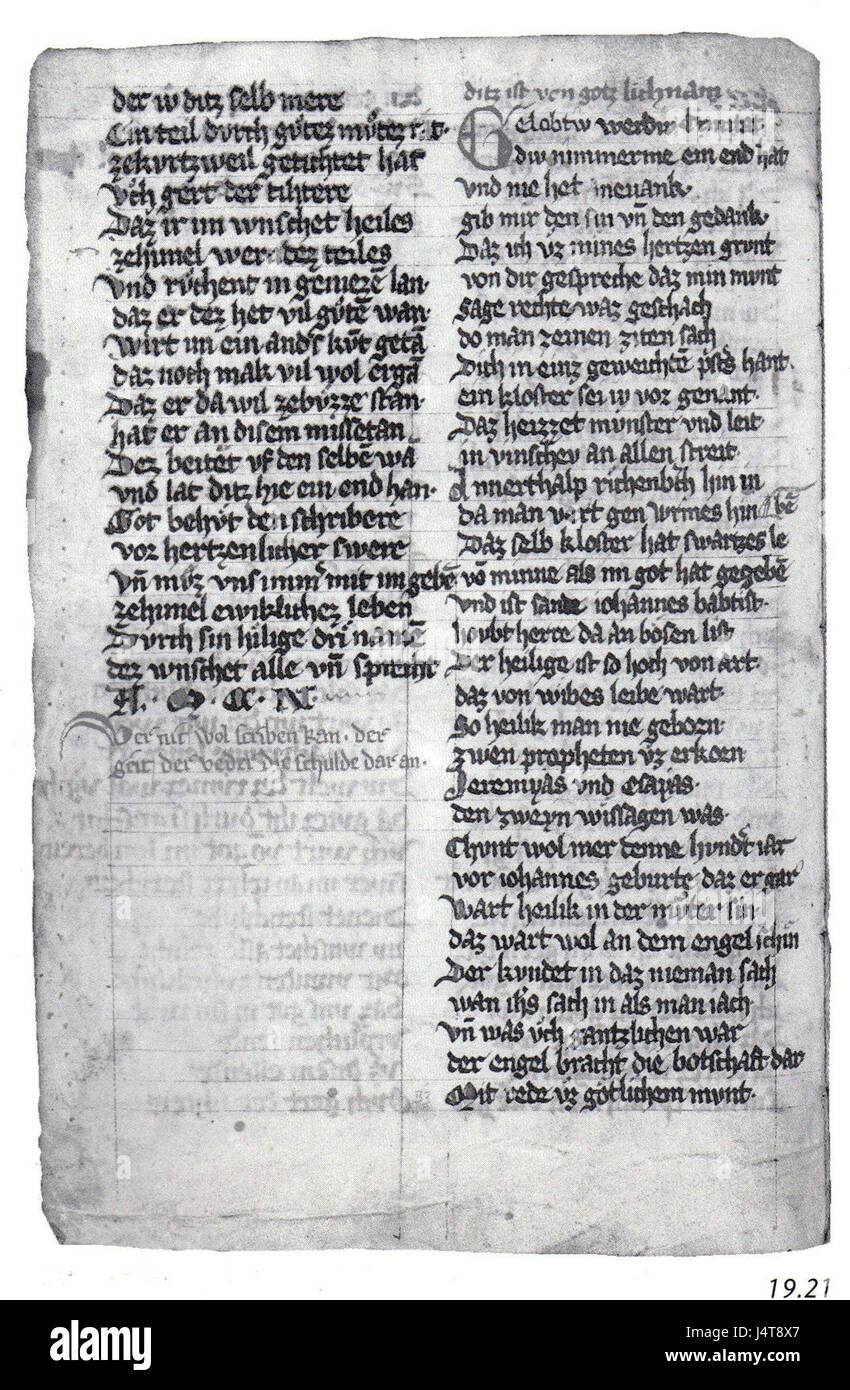 der iv ditz selb mere
Ein teil dvrch gv̊tez mv̊tez
zekvrtzweil getichtet hat
vch gert der tihtere
Daz ir im wnschet heiles
zehimel wer dez teiles
vnd rv̊chent in geniezē lan·
daz er dez het vil gv̊tē wan·
Wirt im ein and's kv̄t getā
daz noch mak vil wol ērgā
Daz er da wil zebvzze stan·
hat er an disem missetan
Dez beitēt vf den selbē wā
vnd lat ditz hie ein end han·
Got behv̊t den schribere
vor hertzenlicher swere
vn̄ mv̊z vns imm' mit im gebē
zehimel ewiklichez leben
Dvrch sin hilige dri namē
dez wnschet alle vn̄ sprechet
A· M· CC· IX·
Wer nit wol scriben kan· der
geit der veder die schulde dar an·
ditz ist von gotz lichnam
Gelobtiv werdiv
div nimmerme ein end hat
vnd nie het anevank·
gib mir den sin vn̄ den gedank·
Daz ich vz mines hertzen grvnt
von dir gespreche daz min mvnt
Sage rechte waz geschach
do man zeinen ziten sach
Dich in einz geweichtē p'sts hant·
ein kloster sei iv vor genant·
Daz heizzet mvnster vnd leit·
in vinschev an allen streit·
Innerthalp richenbch hin in
da man vert gen wrmes hin
Daz selb kloster hat swartzes lebē
vō minne als im got hat gegebē
Vnd ist sande iohannes babtist·
hovbt herre da an bosen list
Der heilige ist so hoch von art·
daz von wibes leibe wart·
So heilik man nie geborn·
zwen propheten vz erkorn
Jeremyas vnd Esayas·
den zweyn wissagen was·
Chvnt wol mer denne hvnd't iar
vor iohannes gebvrte daz er gar
Wart heilik in der mv̊ter sin
daz wart wol an dem engel schin
Der kvndet in daz nieman sach
wan ih's sach in als man iach
vn̄ was v̊ch gantzlichen war
der engel bracht die botschaft dar
Mit rede vz gotlichem mvnt·
19.21
a alamy stock photo
J4T8X7
www.alamy.com